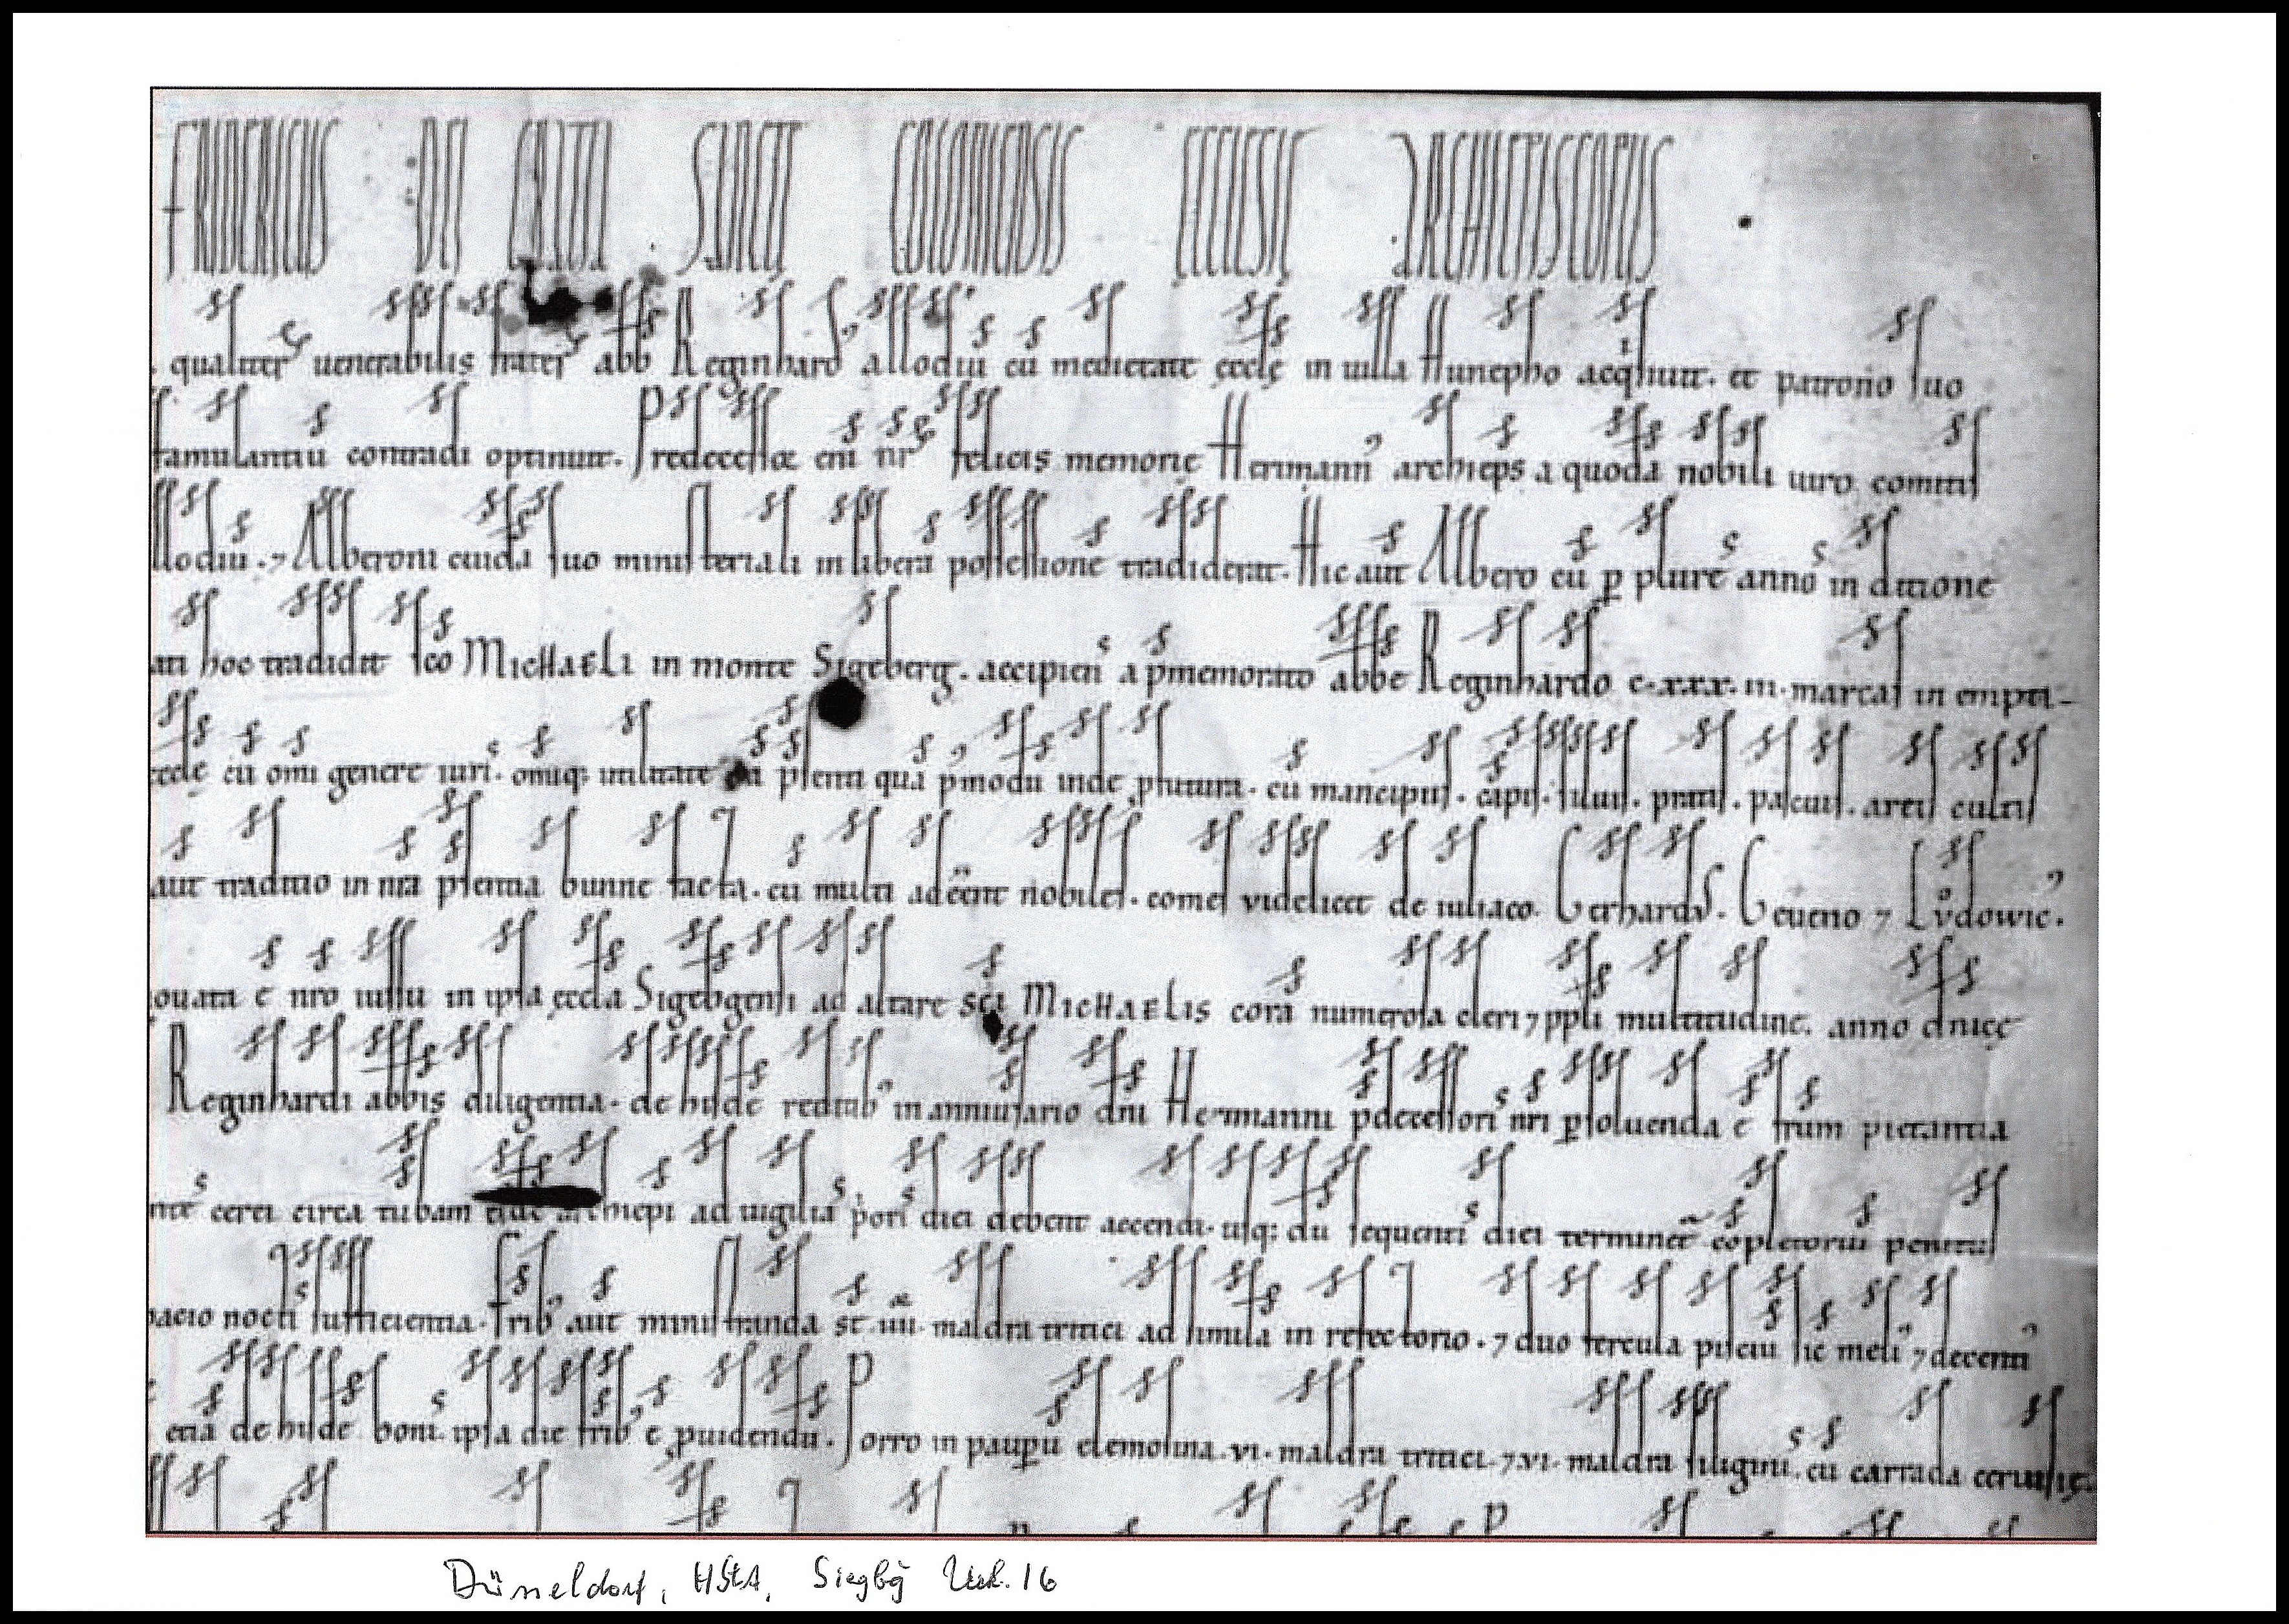 FRIDERICUS DEI GRATIA SANCTĘ COLONIENSIS ECCLESIĘ ARCHIEPISCOPUS
. qualiter uenerabilis frater abb Reginhard᾽ allodiū cū medietate ęcclę in uilla Hunepho acqͥsiuit. et patrono suo
famulantiū contradi optinuit. Predecessor eni nr felicis memorię Hermann᾽ archieps a quodā nobili uiro comitis
llodiū . ⁊ Alberoni cuidā suo ministeriali in liberā possessionē tradiderat. Hic aut Albero cū p plures annos in ditione
ati hoc tradidit sco MICHAELI in monte Sigeberg. accipiens a p̄memorato abbe Reginhardo c.xxx.iii.marcas in empti-
ecclę cū omi genere iuris. omiq; utilitate tā p̄senti quā p᾽modū inde ꝓfutura. cū mancipiis. cāpis. siluis. pratis. pascuis. areis cultis
aut traditio in nra p̄sentia bunne facta. cū multi adeēnt nobiles. comes videlicet de iuliaco. Gerhardus. Geueno ⁊ Lvͦdowic᾽.
ouata ē nro iussu in ipsa ęccla Sigebgensi ad altare sci MICHAELIS corā numerosa cleri ⁊ ppli multitudine. anno dnicę
Reginhardi abbis diligentia. de hisdē reditib᾽ in anniuersario dni Hermanni p̄decessoris nri ꝑsoluenda ē frum pietantia
ntes cerei circa tubam eiusdē archiepi ad uigiliā p᾽oris diei debent accendi. usq; dū sequentis diei terminet᷑ cōpletoriū penitus
pacio noctis sufficientia. frib᾽ aut ministranda st iiii. maldra tritici ad similā in refectorio. ⁊ duo fercula pisciū sic meli᾽ ⁊ decenti᾽
etiā de hisdē bonis ipsa die frib᾽ ē ꝓuidendū. Porro in pauꝑū elemosina .vi. maldra tritici. ⁊ .vi. maldra siliginis. cū carrada ceruisię.
Düsseldorf, HStA, Siegbg Urk. 16